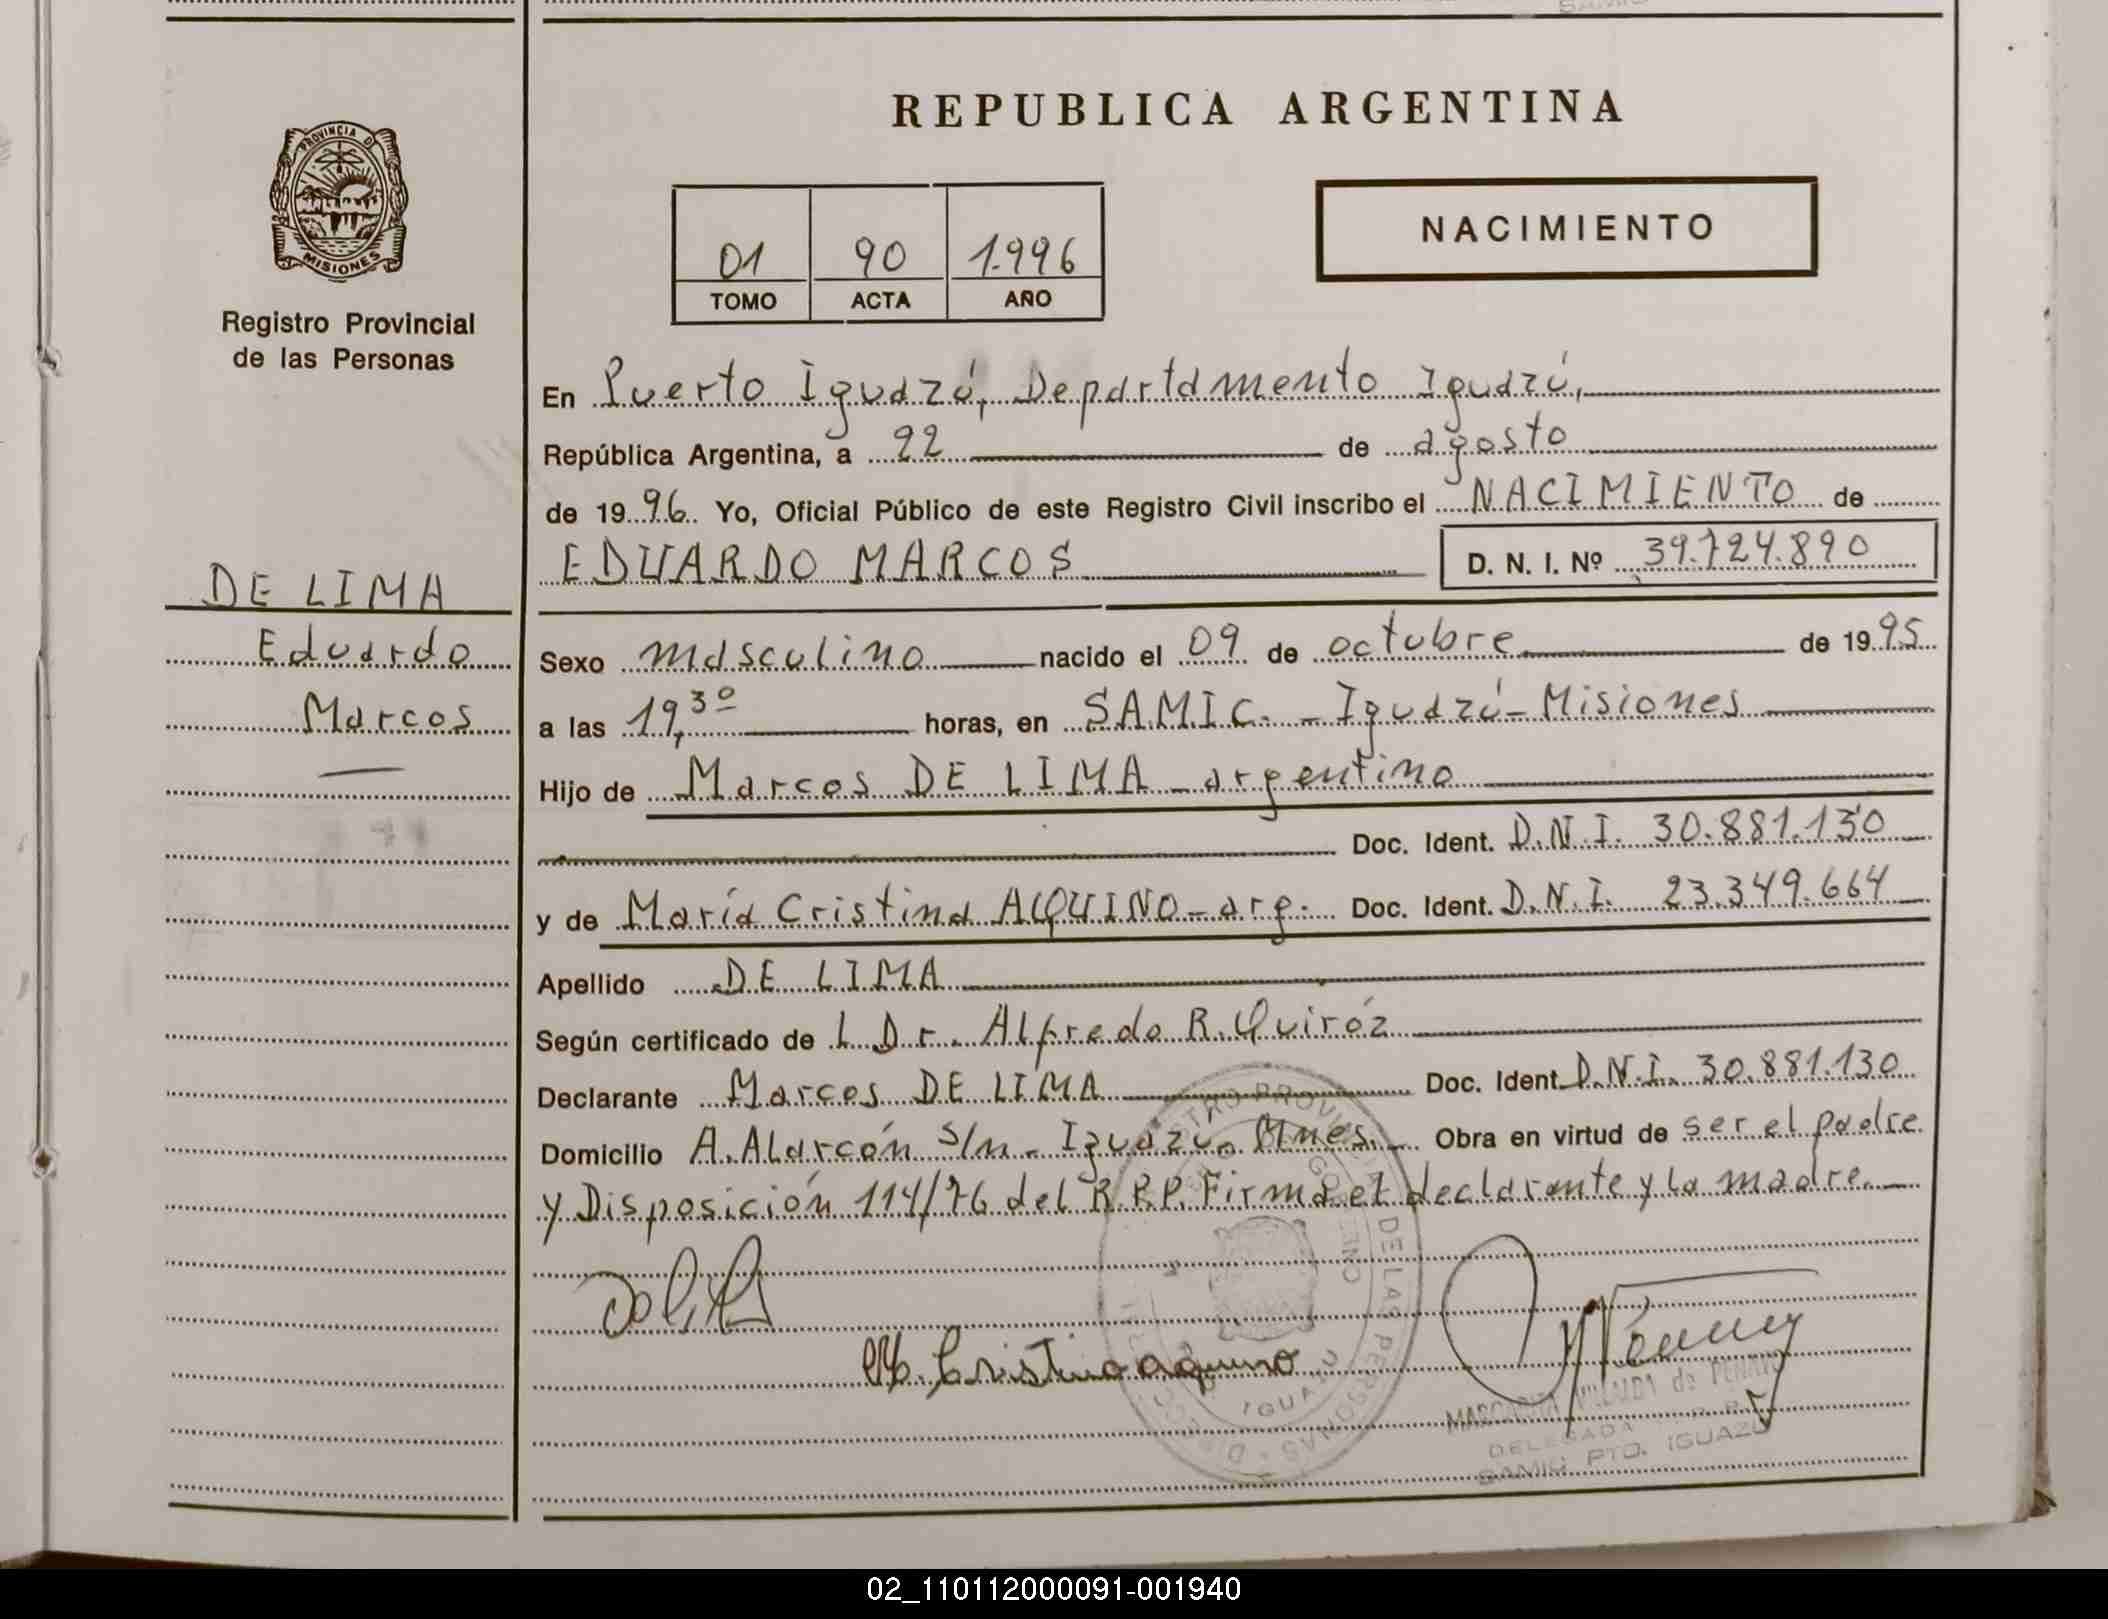 REPUBLICA ARGENTINA
PROVINCIA D
MISIONES
Registro Provincial
de las Personas
01 90 1.996
TOMO ACTA AÑO
NACIMIENTO
En Puerto Iguazú, Departamento Iguazú,
República Argentina, a 22 de agosto
de 1996 Yo, Oficial Público de este Registro Civil inscribo el NACIMIENTO de
EDUARDO MARCOS D. N. I. Nº 39.724.890
DE LIMA
Eduardo
Marcos
Sexo masculino nacido el 09 de octubre de 1995
a las 19,30 horas, en S.A.M.I.C. - Iguazú - Misiones
Hijo de Marcos DE LIMA - argentino
Doc. Ident. D.N.I. 30.881.130
y de María Cristina AQUINO - arg. Doc. Ident. D.N.I. 23.349.664
Apellido DE LIMA
Según certificado de L Dr. Alfredo R. Quiróz
Declarante Marcos DE LIMA Doc. Ident. D.N.I. 30.881.130
Domicilio A. Alarcón s/n - Iguazú Mnes. Obra en virtud de ser el padre
y Disposición 114/76 del R.P.P. Firma el declarante y la madre.
M. Cristina aquino
REGISTRO PROVINCIAL DE LAS PERSONAS
IGUAZU
MARGARITA VILLALBA de
DELEGADA R. P.
SAMIC PTO. IGUAZU
02_110112000091-001940